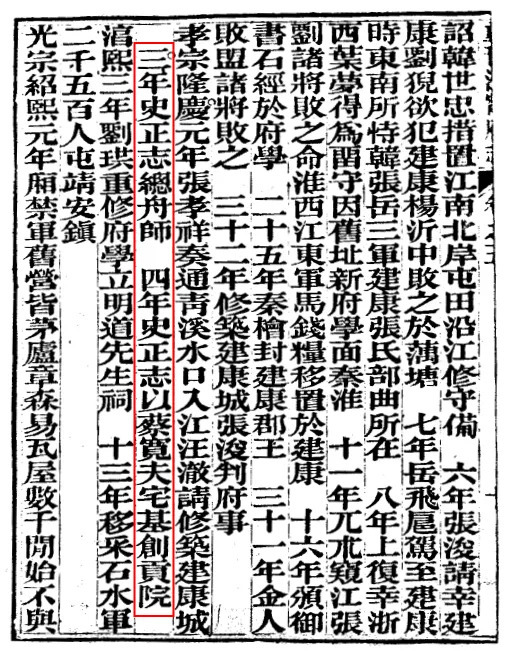 詔韓世忠措置江南北岸屯田沿江修守備　六年張浚請幸建
康劉猊欲犯建康楊沂中敗之於藕塘　七年岳飛扈駕至建康
時東南所恃韓張岳三軍建康張氏部曲所在　八年上復幸浙
西葉夢得為畱守因舊址新府學面秦淮　十一年兀朮窺江張
劉諸將敗之命淮西江東軍馬錢糧移置於建康　十六年頒御
書石經於府學　二十五年秦檜封建康郡王　三十一年金人
敗盟諸將敗之　三十二年修築建康城張浚判府事
孝宗隆慶元年張孝祥奏通青溪水口入江汪澈請修築建康城
三年史正志總舟師　四年史正志以蔡寬夫宅基創貢院
淳熙二年劉珙重修府學立明道先生祠　十三年移采石水軍
二千五百人屯靖安鎮
光宗紹熙元年廂禁軍舊營皆茅廬章森易瓦屋數千間始不與